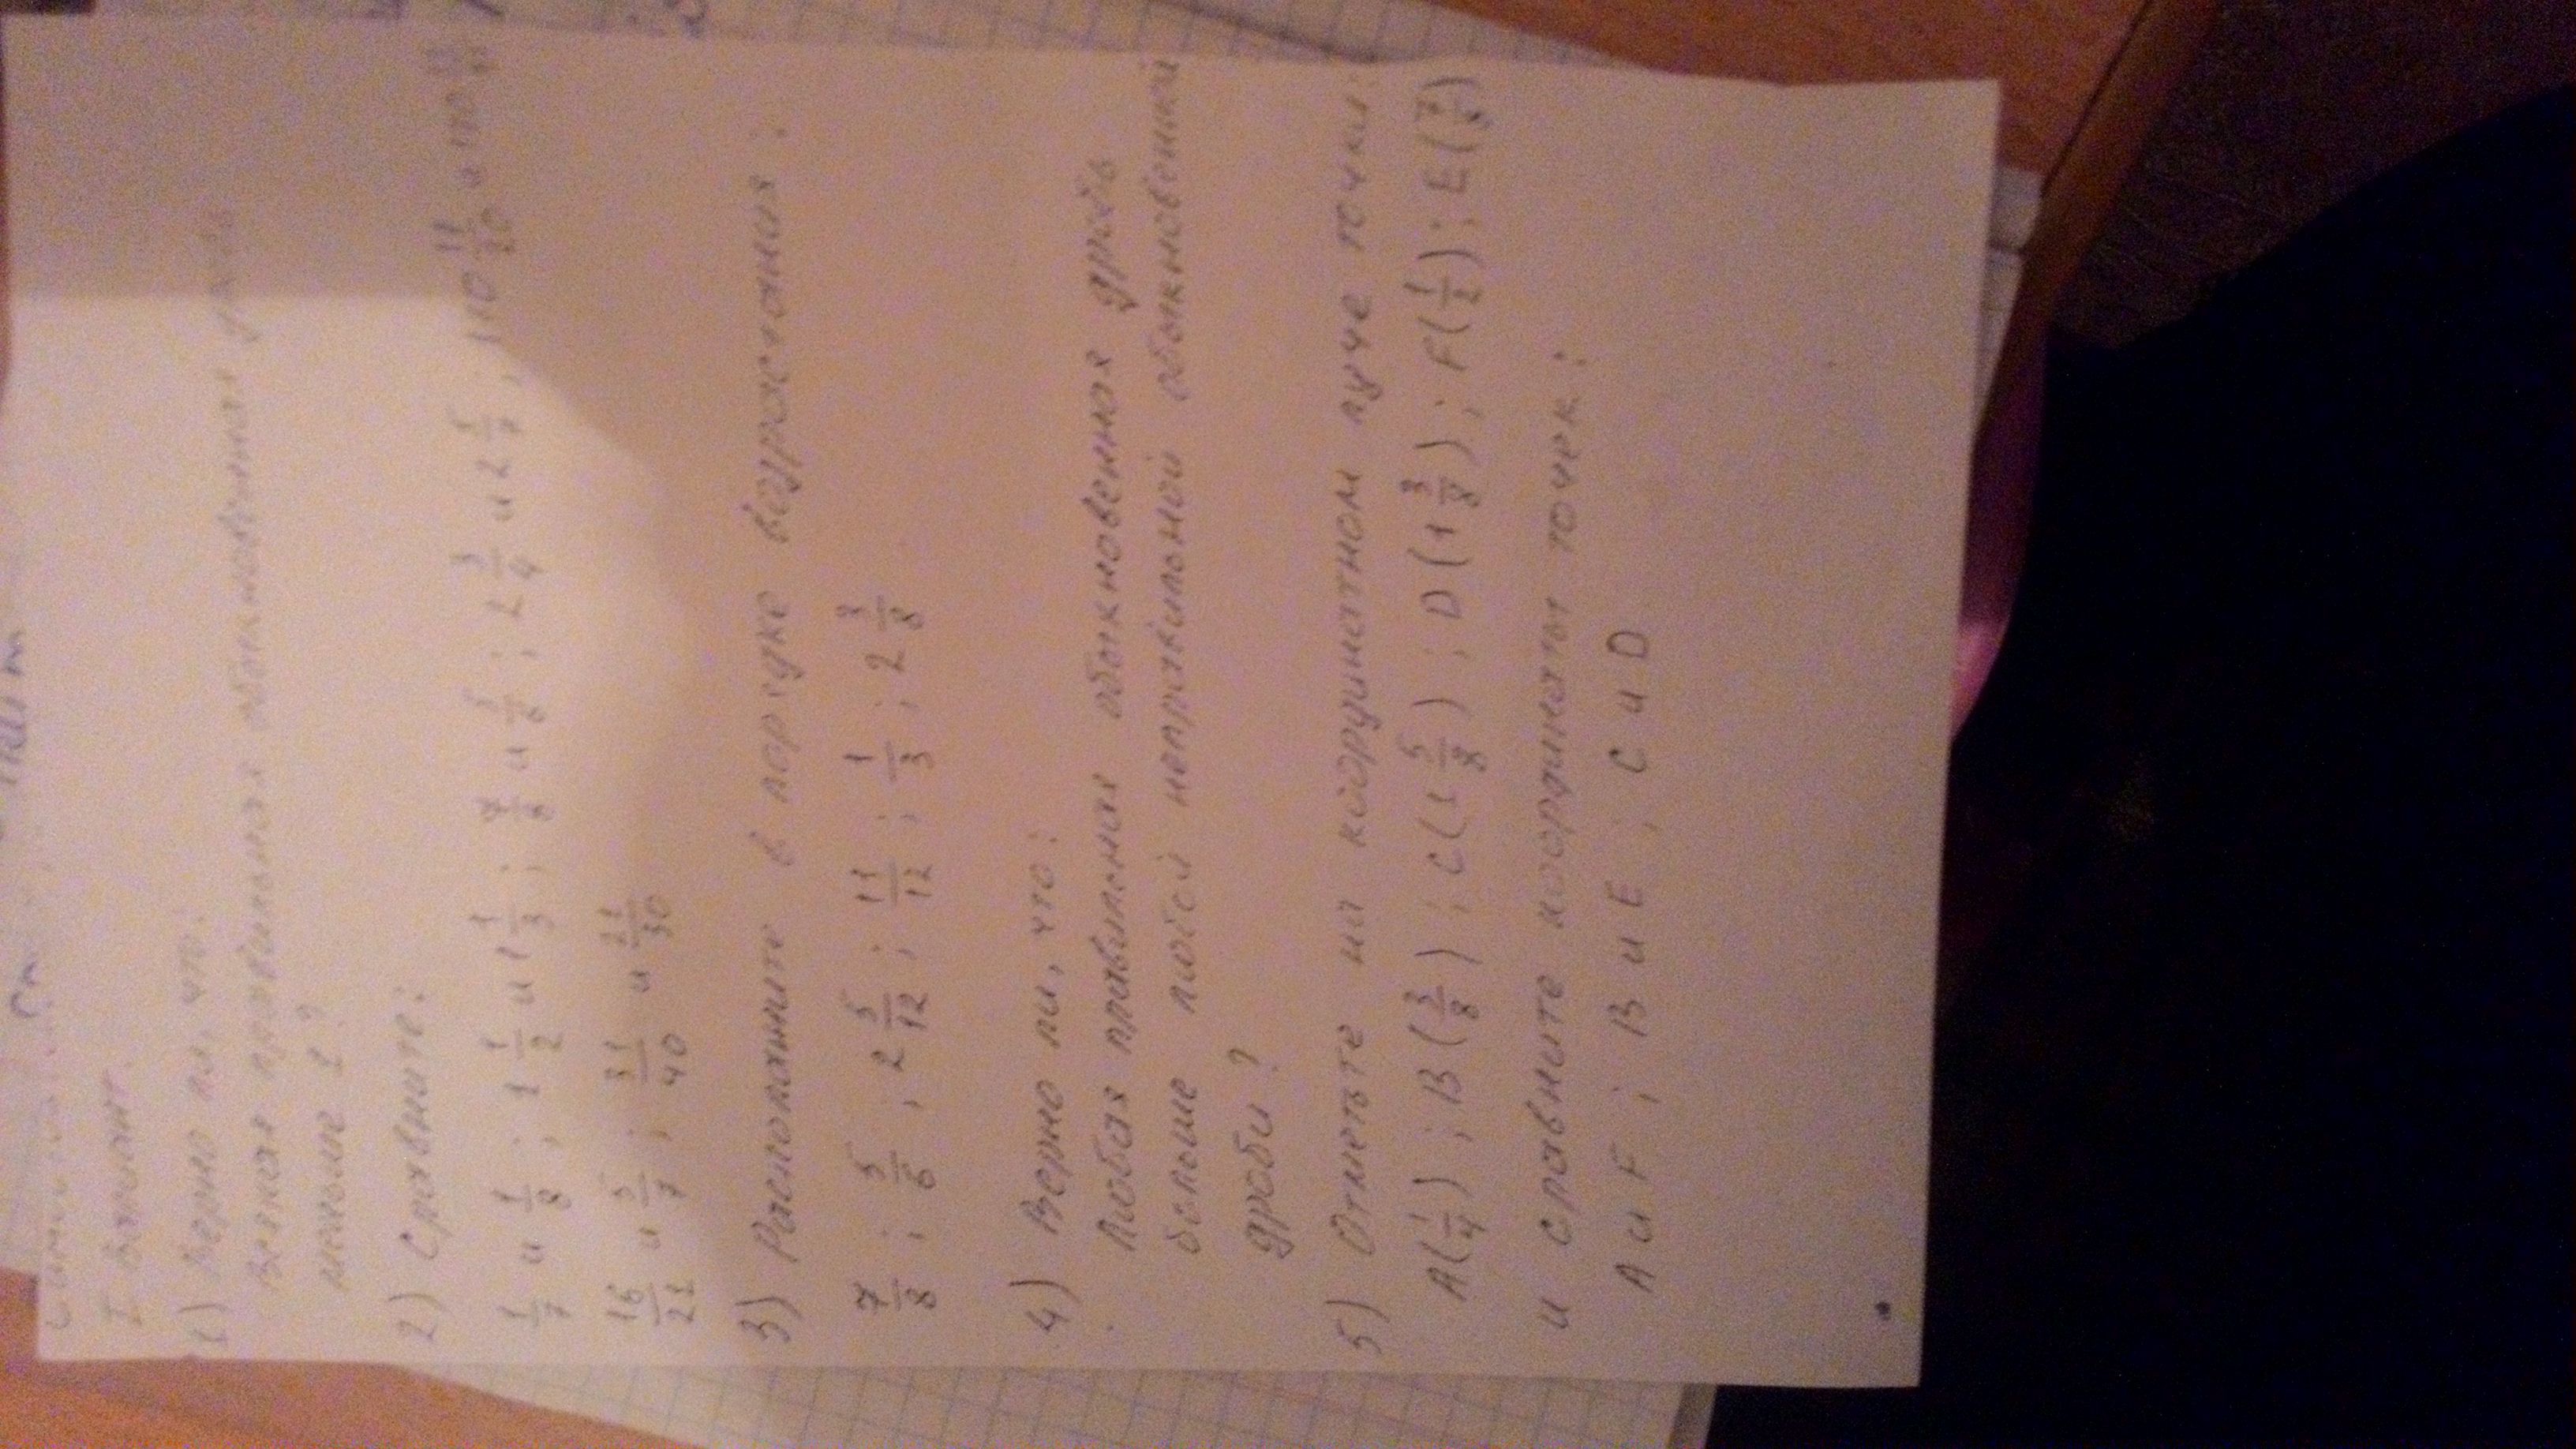 I вариант.
1) Верно ли, что:
Всякая правильная обыкновенная дробь
меньше 1?
2) Сравните:
1/7 и 1/8; 1 1/2 и 1 1/3; 7/8 и 5/6; 2 3/4 и 2 5/7; 110 11/20 и 110
16/21 и 5/7; 31/40 и 21/30
3) Расположите в порядке возрастания:
7/8; 5/6; 2 5/12; 11/12; 1/3; 2 3/8
4) Верно ли, что:
Любая правильная обыкновенная дробь
больше любой неправильной обыкновенной
дроби?
5) Отметьте на координатном луче точки:
A(1/4); B(3/8); C(1 5/8); D(1 3/8); F(1/2); E(7/8)
и сравните координаты точек:
A и F; B и E; C и D